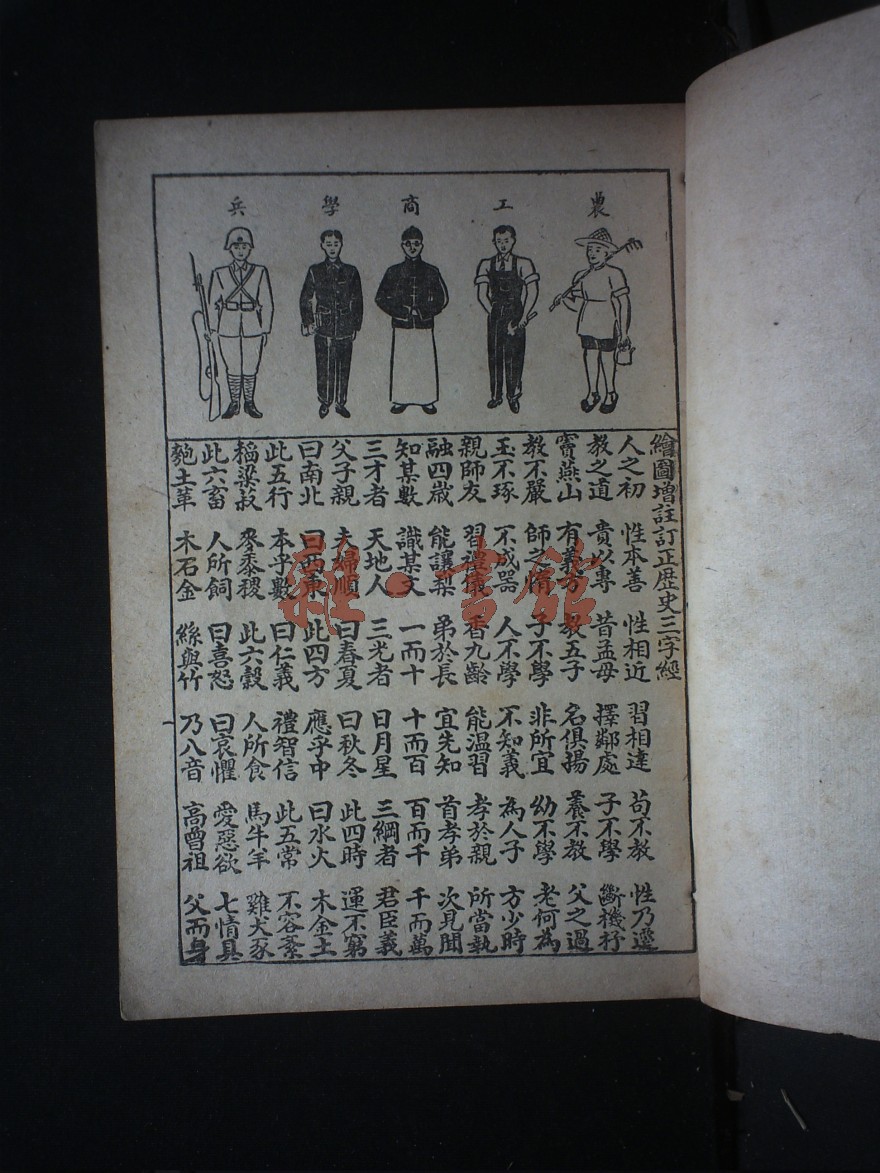 農 工 商 學 兵
繪圖增註訂正歷史三字經
人之初 性本善 性相近 習相遠 苟不教 性乃遷
教之道 貴以專 昔孟母 擇鄰處 子不學 斷機杼
竇燕山 有義方 教五子 名俱揚 養不教 父之過
教不嚴 師之惰 子不學 非所宜 幼不學 老何為
玉不琢 不成器 人不學 不知義 為人子 方少時
親師友 習禮儀 香九齡 能溫習 孝於親 所當執
融四歲 能讓梨 弟於長 宜先知 首孝弟 次見聞
知某數 識某文 一而十 十而百 百而千 千而萬
三才者 天地人 三光者 日月星 三綱者 君臣義
父子親 夫婦順 曰春夏 曰秋冬 此四時 運不窮
曰南北 曰西東 此四方 應乎中 曰水火 木金土
此五行 本乎數 曰仁義 禮智信 此五常 不容紊
稻粱菽 麥黍稷 此六穀 人所食 馬牛羊 雞犬豕
此六畜 人所飼 曰喜怒 曰哀懼 愛惡欲 七情具
匏土革 木石金 絲與竹 乃八音 高曾祖 父而身
雜·書館